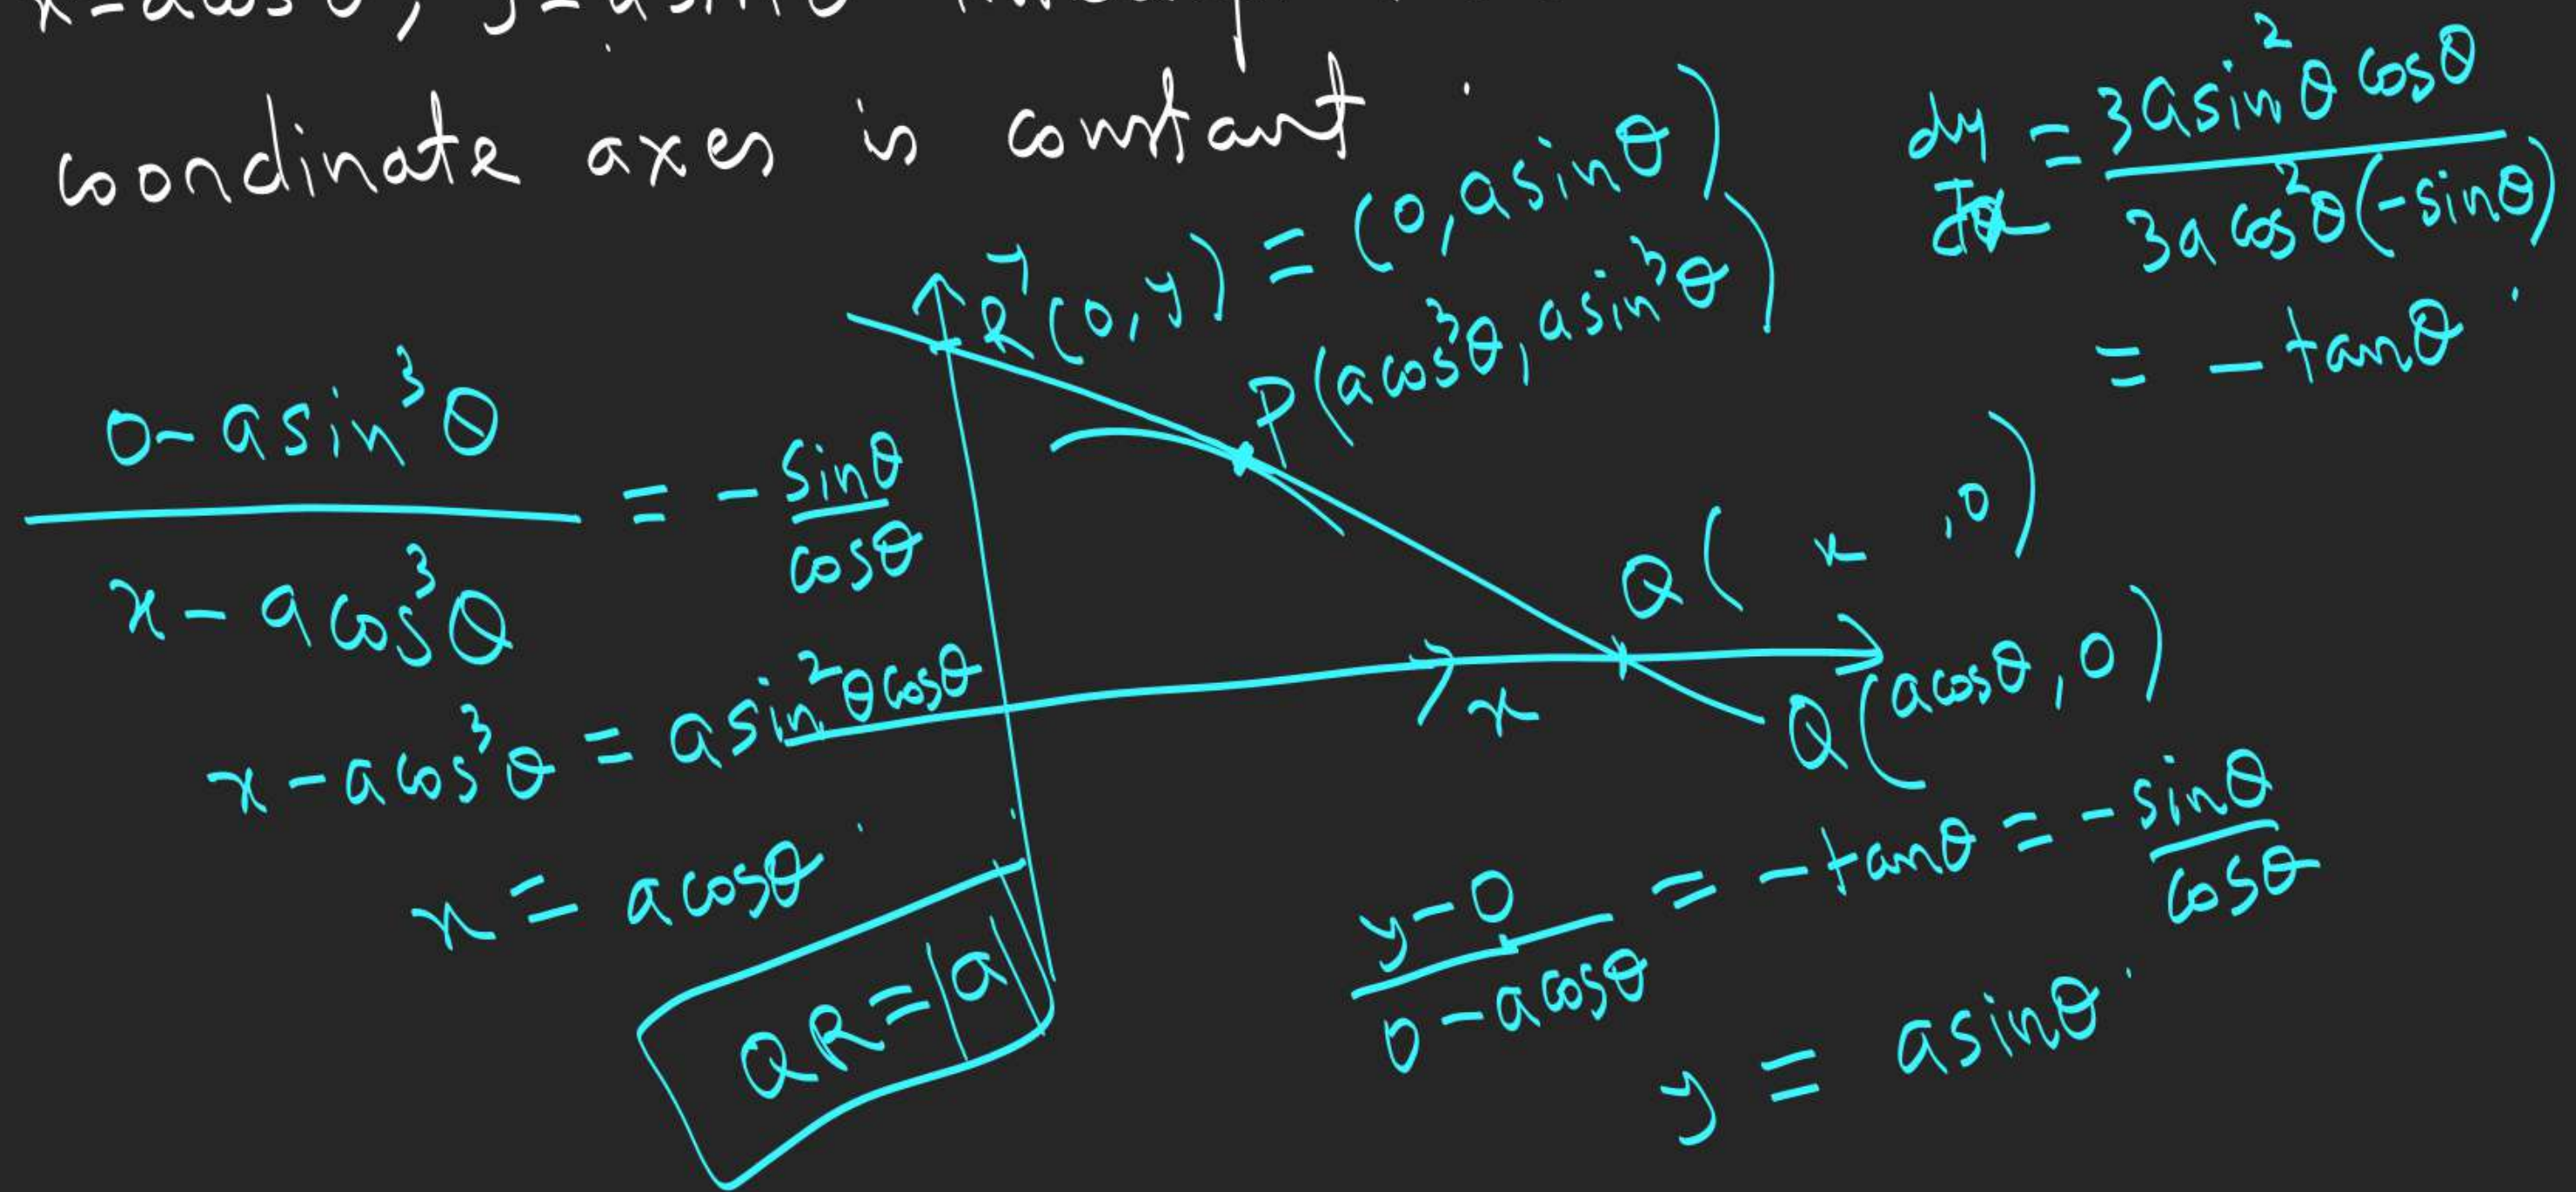 coordinate axes is constant.
dy/dx = 3a sin²θ cosθ / 3a cos²θ (-sinθ)
= - tanθ.
R(0, y) = (0, a sinθ)
P(a cos³θ, a sin³θ)
0 - a sin³θ / x - a cos³θ = - sinθ / cosθ
x - a cos³θ = a sin²θ cosθ
x = a cosθ.
QR = |a|
Q( x , 0)
x
Q(a cosθ, 0)
y - 0 / 0 - a cosθ = - tanθ = - sinθ / cosθ
y = a sinθ.